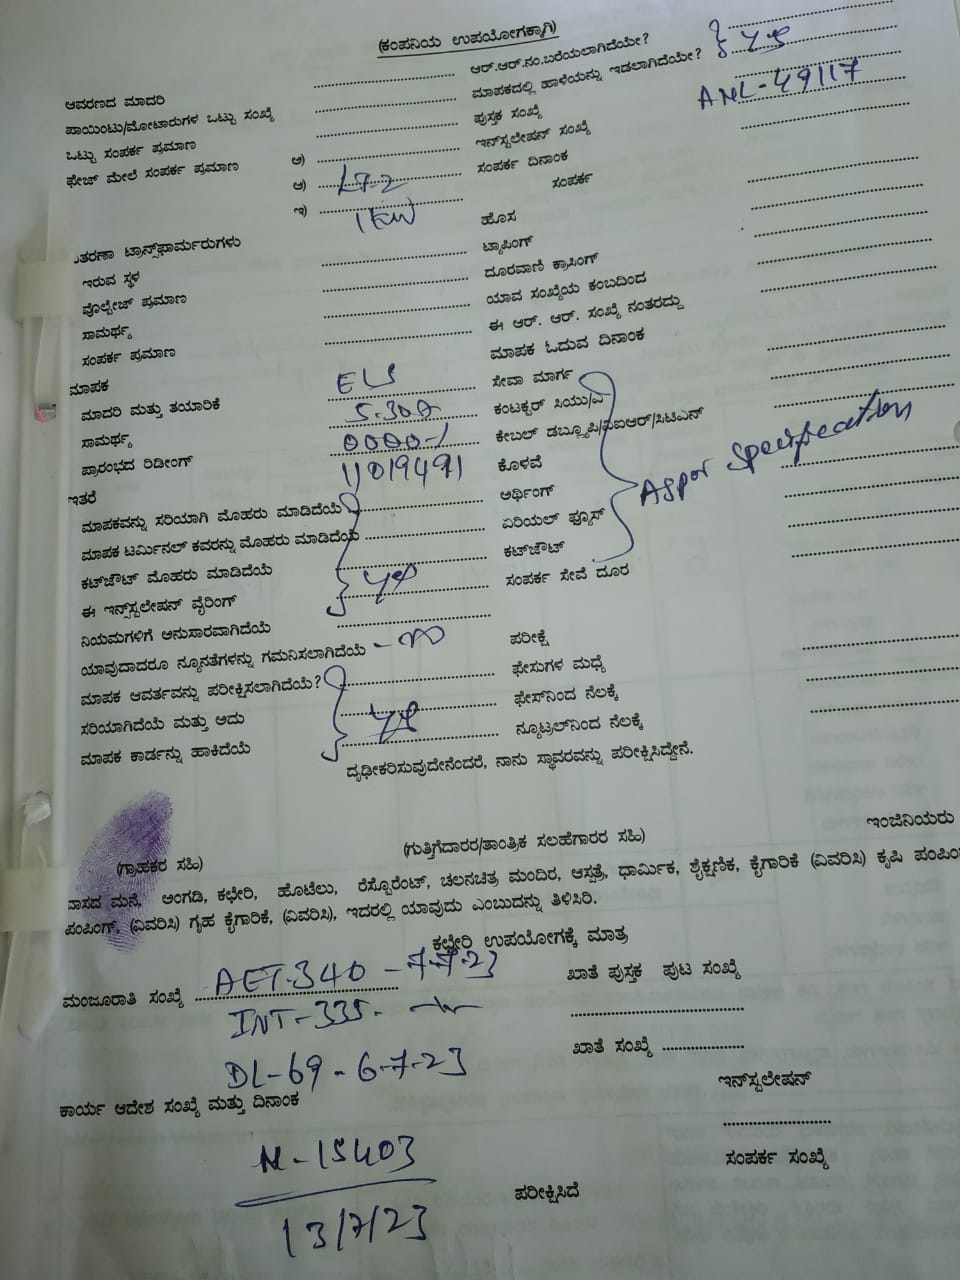 (ಕಂಪನಿಯ ಉಪಯೋಗಕ್ಕಾಗಿ)
ಆವರಣದ ಮಾದರಿ
ಪಾಯಿಂಟು/ಮೋಟಾರುಗಳ ಒಟ್ಟು ಸಂಖ್ಯೆ
ಒಟ್ಟು ಸಂಪರ್ಕ ಪ್ರಮಾಣ
ಫೇಜ್ ಮೇಲೆ ಸಂಪರ್ಕ ಪ್ರಮಾಣ ಅ)
ಆ) LT-2
ಇ) 1KW
ಆರ್.ಆರ್.ನಂ.ಬರೆಯಲಾಗಿದೆಯೇ?
ಮಾಪಕದಲ್ಲಿ ಹಾಳೆಯನ್ನು ಇಡಲಾಗಿದೆಯೇ?
ಪುಸ್ತಕ ಸಂಖ್ಯೆ
ಇನ್‌ಸ್ಟಲೇಷನ್ ಸಂಖ್ಯೆ ANL-49117
ಸಂಪರ್ಕ ದಿನಾಂಕ
ಸಂಪರ್ಕ
ತರಣಾ ಟ್ರಾನ್ಸ್‌ಫಾರ್ಮರುಗಳು
ಇರುವ ಸ್ಥಳ
ವೋಲ್ಟೇಜ್ ಪ್ರಮಾಣ
ಸಾಮರ್ಥ್ಯ
ಸಂಪರ್ಕ ಪ್ರಮಾಣ
ಹೊಸ
ಟ್ಯಾಪಿಂಗ್
ದೂರವಾಣಿ ಕ್ರಾಸಿಂಗ್
ಯಾವ ಸಂಖ್ಯೆಯ ಕಂಬದಿಂದ
ಈ ಆರ್. ಆರ್. ಸಂಖ್ಯೆ ನಂತರದ್ದು
ಮಾಪಕ ಓದುವ ದಿನಾಂಕ
ಮಾಪಕ
ಮಾದರಿ ಮತ್ತು ತಯಾರಿಕೆ
ಸಾಮರ್ಥ್ಯ 5-30A
ಪ್ರಾರಂಭದ ರಿಡೀಂಗ್ 0000-1
11019491
ಸೇವಾ ಮಾರ್ಗ
ಕಂಟಕ್ಟರ್ ಸಿಯು/ಎ
ಕೇಬಲ್ ಡಬ್ಲ್ಯೂಪಿ/ಪಿಐಆರ್/ಸಿಟಿಎಸ್
ಕೊಳವೆ
ಅರ್ಥಿಂಗ್
ಏರಿಯಲ್ ಫ್ಯೂಸ್
ಕಟ್‌ಔಟ್
ಸಂಪರ್ಕ ಸೇವೆ ದೂರ
Asper specification
ಇತರೆ
ಮಾಪಕವನ್ನು ಸರಿಯಾಗಿ ಮೊಹರು ಮಾಡಿದೆಯೆ
ಮಾಪಕ ಟರ್ಮಿನಲ್ ಕವರನ್ನು ಮೊಹರು ಮಾಡಿದೆಯೆ
ಕಟ್‌ಔಟ್ ಮೊಹರು ಮಾಡಿದೆಯೆ
ಈ ಇನ್ಸ್ಟಲೇಷನ್ ವೈರಿಂಗ್
ನಿಯಮಗಳಿಗೆ ಅನುಸಾರವಾಗಿದೆಯೆ
ಯಾವುದಾದರೂ ನ್ಯೂನತೆಗಳನ್ನು ಗಮನಿಸಲಾಗಿದೆಯೆ - no
ಮಾಪಕ ಆವರ್ತವನ್ನು ಪರೀಕ್ಷಿಸಲಾಗಿದೆಯೆ?
ಸರಿಯಾಗಿದೆಯೆ ಮತ್ತು ಅದು
ಮಾಪಕ ಕಾರ್ಡನ್ನು ಹಾಕಿದೆಯೆ
ಪರೀಕ್ಷೆ
ಫೇಸುಗಳ ಮಧ್ಯೆ
ಫೇಸ್‌ನಿಂದ ನೆಲಕ್ಕೆ
ನ್ಯೂಟ್ರಲ್‌ನಿಂದ ನೆಲಕ್ಕೆ
ದೃಢೀಕರಿಸುವುದೇನೆಂದರೆ, ನಾನು ಸ್ಥಾವರವನ್ನು ಪರೀಕ್ಷಿಸಿದ್ದೇನೆ.
(ಗ್ರಾಹಕರ ಸಹಿ) (ಗುತ್ತಿಗೆದಾರರ/ತಾಂತ್ರಿಕ ಸಲಹೆಗಾರರ ಸಹಿ) ಇಂಜಿನಿಯರು
ವಾಸದ ಮನೆ, ಅಂಗಡಿ, ಕಛೇರಿ, ಹೊಟೆಲು, ರೆಸ್ಟೊರೆಂಟ್, ಚಲನಚಿತ್ರ ಮಂದಿರ, ಆಸ್ಪತ್ರೆ, ಧಾರ್ಮಿಕ, ಶೈಕ್ಷಣಿಕ, ಕೈಗಾರಿಕೆ (ವಿವರಿಸಿ) ಕೃಷಿ ಪಂಪಿಂಗ್
ಪಂಪಿಂಗ್, (ವಿವರಿಸಿ) ಗೃಹ ಕೈಗಾರಿಕೆ, (ವಿವರಿಸಿ), ಇದರಲ್ಲಿ ಯಾವುದು ಎಂಬುದನ್ನು ತಿಳಿಸಿರಿ.
ಕಛೇರಿ ಉಪಯೋಗಕ್ಕೆ ಮಾತ್ರ
ಮಂಜೂರಾತಿ ಸಂಖ್ಯೆ AET-340 - 7-7-23
INT-335-
DL-69-6-7-23
ಖಾತೆ ಪುಸ್ತಕ ಪುಟ ಸಂಖ್ಯೆ
ಖಾತೆ ಸಂಖ್ಯೆ
ಕಾರ್ಯ ಆದೇಶ ಸಂಖ್ಯೆ ಮತ್ತು ದಿನಾಂಕ
ಇನ್‌ಸ್ಟಲೇಷನ್
N-15403
13/7/23
ಸಂಪರ್ಕ ಸಂಖ್ಯೆ
ಪರೀಕ್ಷಿಸಿದೆ